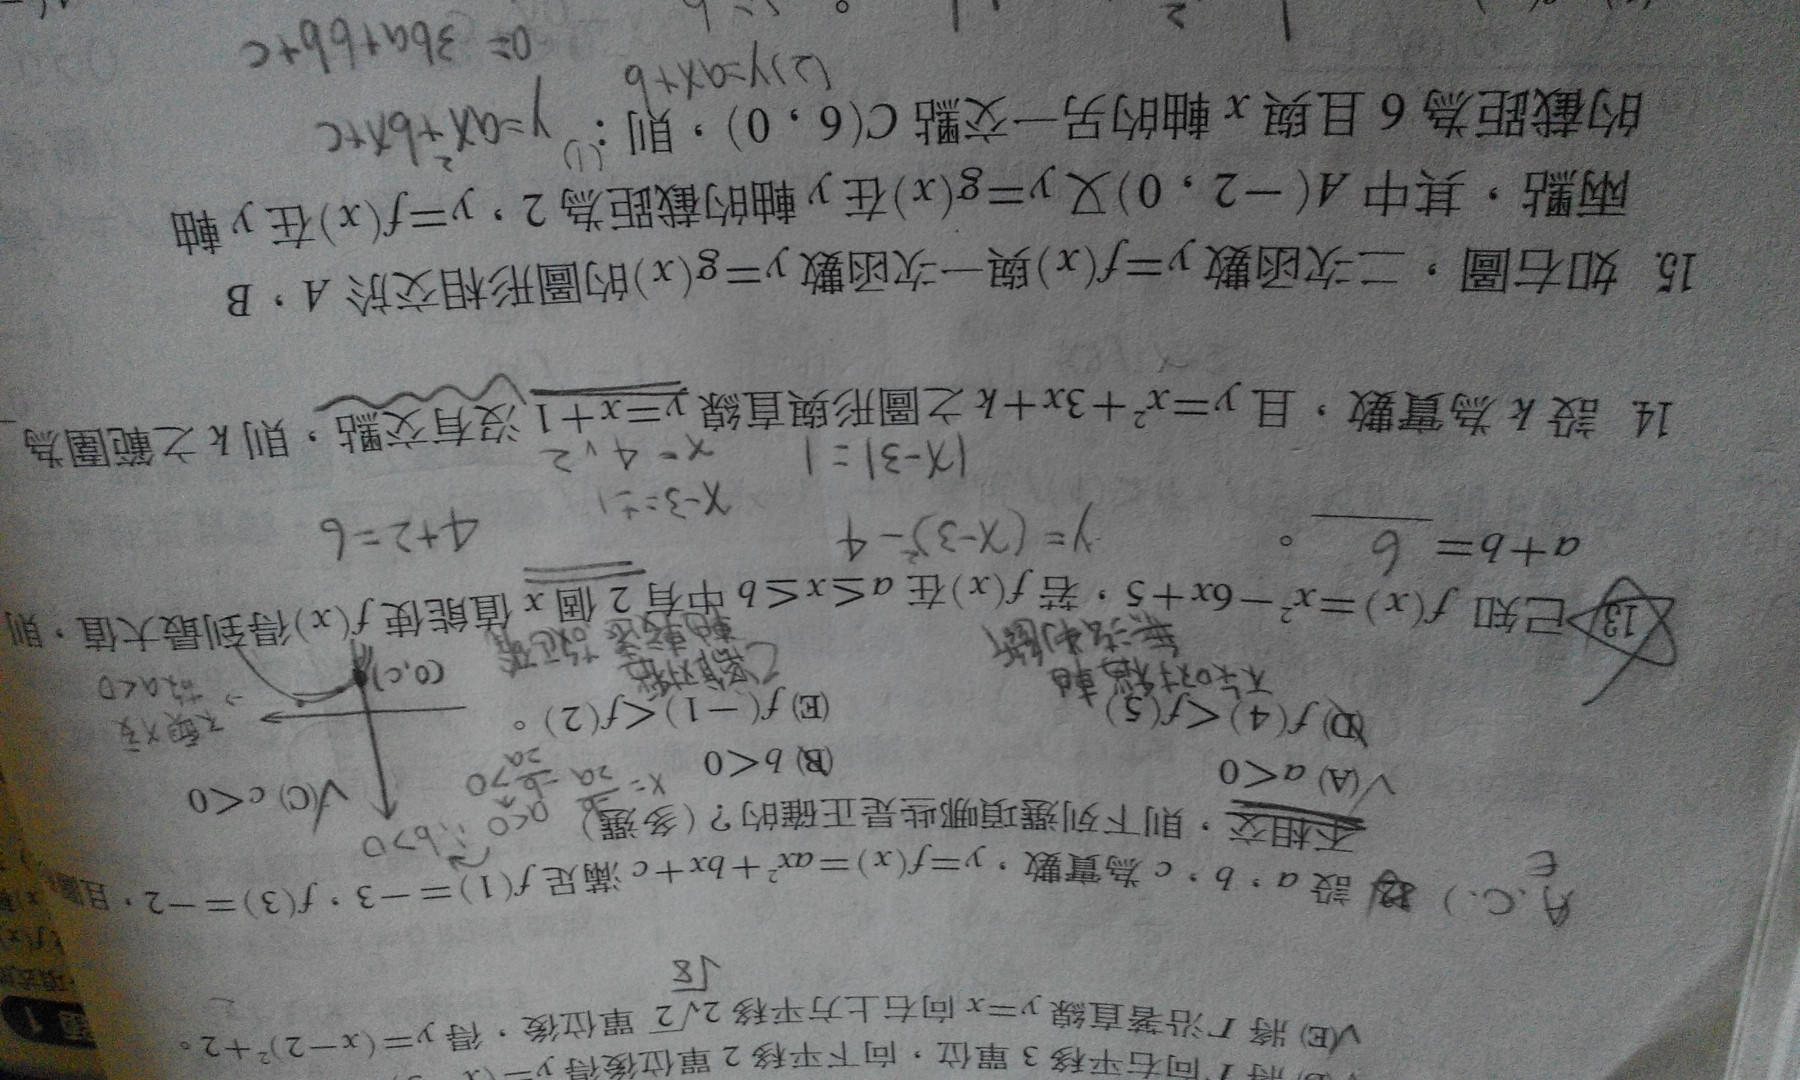 (E) 將 Γ 沿著直線 y=x 向右上方平移 2√2 單位後，得 y=(x−2)²+2。
√8
A.C.)
E
設 a，b，c 為實數，y=f(x)=ax²+bx+c 滿足 f(1)=−3，f(3)=−2，且
不相交，則下列選項哪些是正確的？(多選)
a<0 ∴b>0
√(A) a<0 (B) b<0 √(C) c<0
x= −b/2a −b/2a>0
(D) f(4)<f(5) (E) f(−1)<f(2)。
不知對稱軸
無法判斷
(0,c)
故a<0
13. 已知 f(x)=x²−6x+5，若 f(x)在 a≤x≤b 中有 2 個 x 值能使 f(x)得到最大值，則
a+b= 6 。
y=(x-3)²-4
4+2=6
x-3=±1
|x-3|=1
x=4、2
14. 設 k 為實數，且 y=x²+3x+k 之圖形與直線 y=x+1 沒有交點，則 k 之範圍為
15. 如右圖，二次函數 y=f(x)與一次函數 y=g(x)的圖形相交於 A，B
兩點，其中 A(−2，0)又 y=g(x)在 y 軸的截距為 2，y=f(x)在 y 軸
的截距為 6 且與 x 軸的另一交點 C(6，0)，則：
(1) y=ax²+bx+c
(2) y=ax+b
0=36a+6b+c